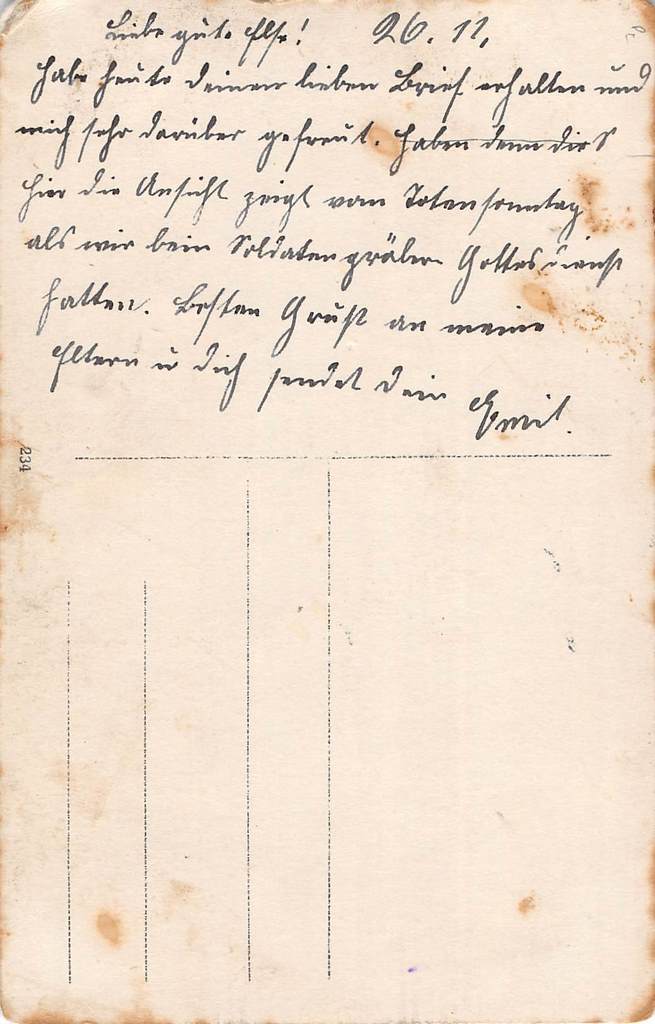 Liebe gute Else! 26. 11.
Habe heute deinen lieben Brief erhalten und
mich sehr darüber gefreut. Haben denn dies
hier die Ansicht zeigt vom Totensonntag
als wir beim Soldatengräber Gottesdienst
hatten. Besten Gruß an meine
Eltern u dich sendet dein Emil.
234